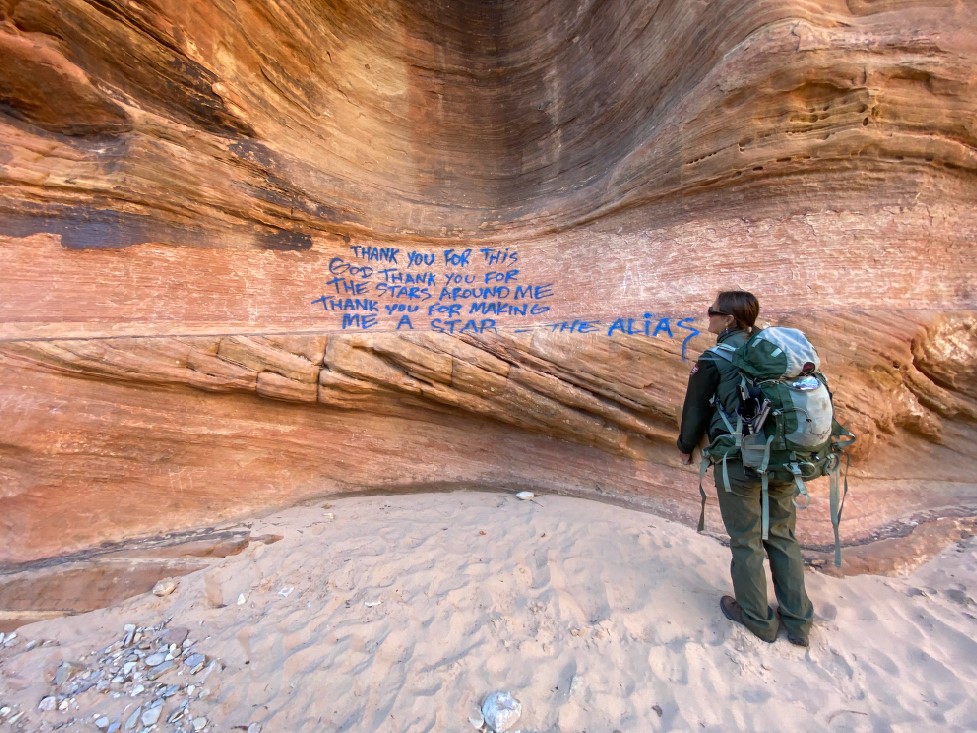 THANK YOU FOR THIS
GOD THANK YOU FOR
THE STARS AROUND ME
THANK YOU FOR MAKING
ME A STAR - THE ALIAS